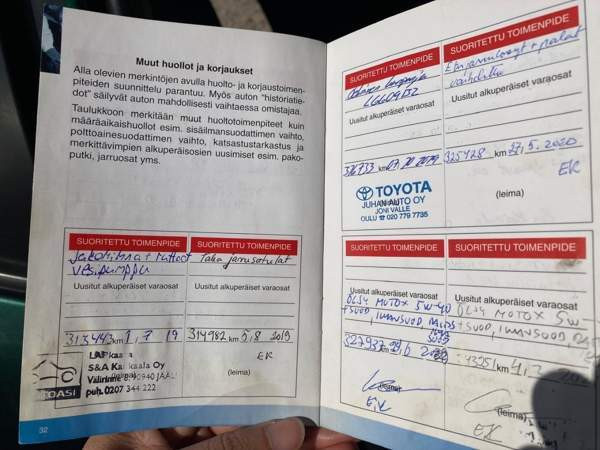 Muut huollot ja korjaukset
Alla olevien merkintöjen avulla huolto- ja korjaustoimen-
piteiden suunnittelu parantuu. Myös auton "historiatie-
dot" säilyvät auton mahdollisesti vaihtaessa omistajaa.
Taulukkoon merkitään muut huoltotoimenpiteet kuin
määräaikaishuollot esim. sisäilmansuodattimen vaihto,
polttoainesuodattimen vaihto, katsastustarkastus ja
merkittävimpien alkuperäisosien uusimiset esim. pako-
putki, jarruosat yms.
SUORITETTU TOIMENPIDE
Jakohihna + tuotteet
vesipumppu
Uusitut alkuperäiset varaosat
313443 km 1,7 19
S&A Oy
90940 JÄÄLI
puh. 0207 344 222
SUORITETTU TOIMENPIDE
Taka jarrusatulat
Uusitut alkuperäiset varaosat
314982 km 5,8 2019
EK
(leima)
32
SUORITETTU TOIMENPIDE
Uusitut alkuperäiset varaosat
km 07.10 2019
TOYOTA
JUHAN AUTO OY
JONI VALLE
OULU ☎ 020 779 7735
SUORITETTU TOIMENPIDE
Etujarrulevyt + palat
Uusitut alkuperäiset varaosat
325428 km 27,5. 2020
EK
(leima)
SUORITETTU TOIMENPIDE
Uusitut alkuperäiset varaosat
ÖLJY MOTOX 5W-40
+ SUOD, ILMANSUOD
327937 km
(leima)
E,K
SUORITETTU TOIMENPIDE
Uusitut alkuperäiset varaosat
ÖLJY MOTOX 5W-
+ SUOD, ILMANSUOD
km
(leima)
EK